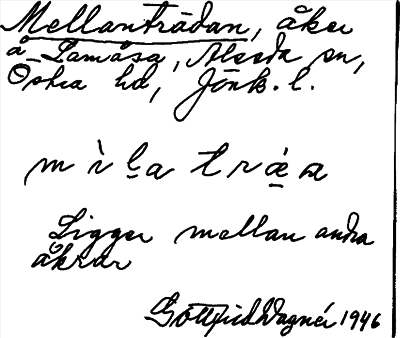 Mellanträdan, åker
å Lamåsa, Alseda sn,
Östra hd, Jönk. l.
Ligger mellan andra
åkrar
Gottfrid Wagnér 1946